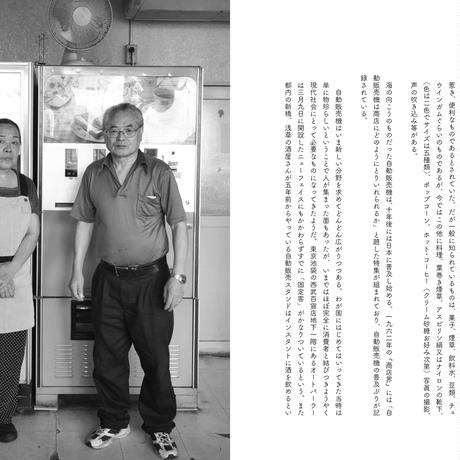 惹き、便利なものであるとされていた。だが一般に知られているものは、菓子、煙草、飲料水、豆類、チュ
ウインガムぐらいのものであるが、今ではこの他に料理、葉巻き煙草、アスピリン絹又はナイロンの靴下、
（色は二色でサイズは五種類）、ポップコーン、ホット・コーヒー（クリーム砂糖お好み次第）写真の撮影、
声の吹き込み等がある。
海の向こうのものだった自動販売機は、十年後には日本に普及し始める。一九六二年の『商店界』には、「自
動販売機は商店にどのようにとりいれられるか」と題した特集が組まれており、自動販売機の普及ぶりが記
録されている。
自動販売機はいま新しい分野を求めてどんどん広がりつつある。わが国にはじめてはいってきた当時は
単に物珍らしいということで人が集まった面もあったが、いまではほぼ完全に消費者と結びつきようやく
現代社会にとって必要なものになってきたようだ。東京池袋の西武百貨店地下一階にあるオートパーラー
は三月九日に開設したニューフェイスにもかかわらずすでに「固定客」がかなりついているという。また
都内の新橋、浅草の酒屋さんが五年前からやっている自動販売スタンドはインスタントに酒を飲めるとい